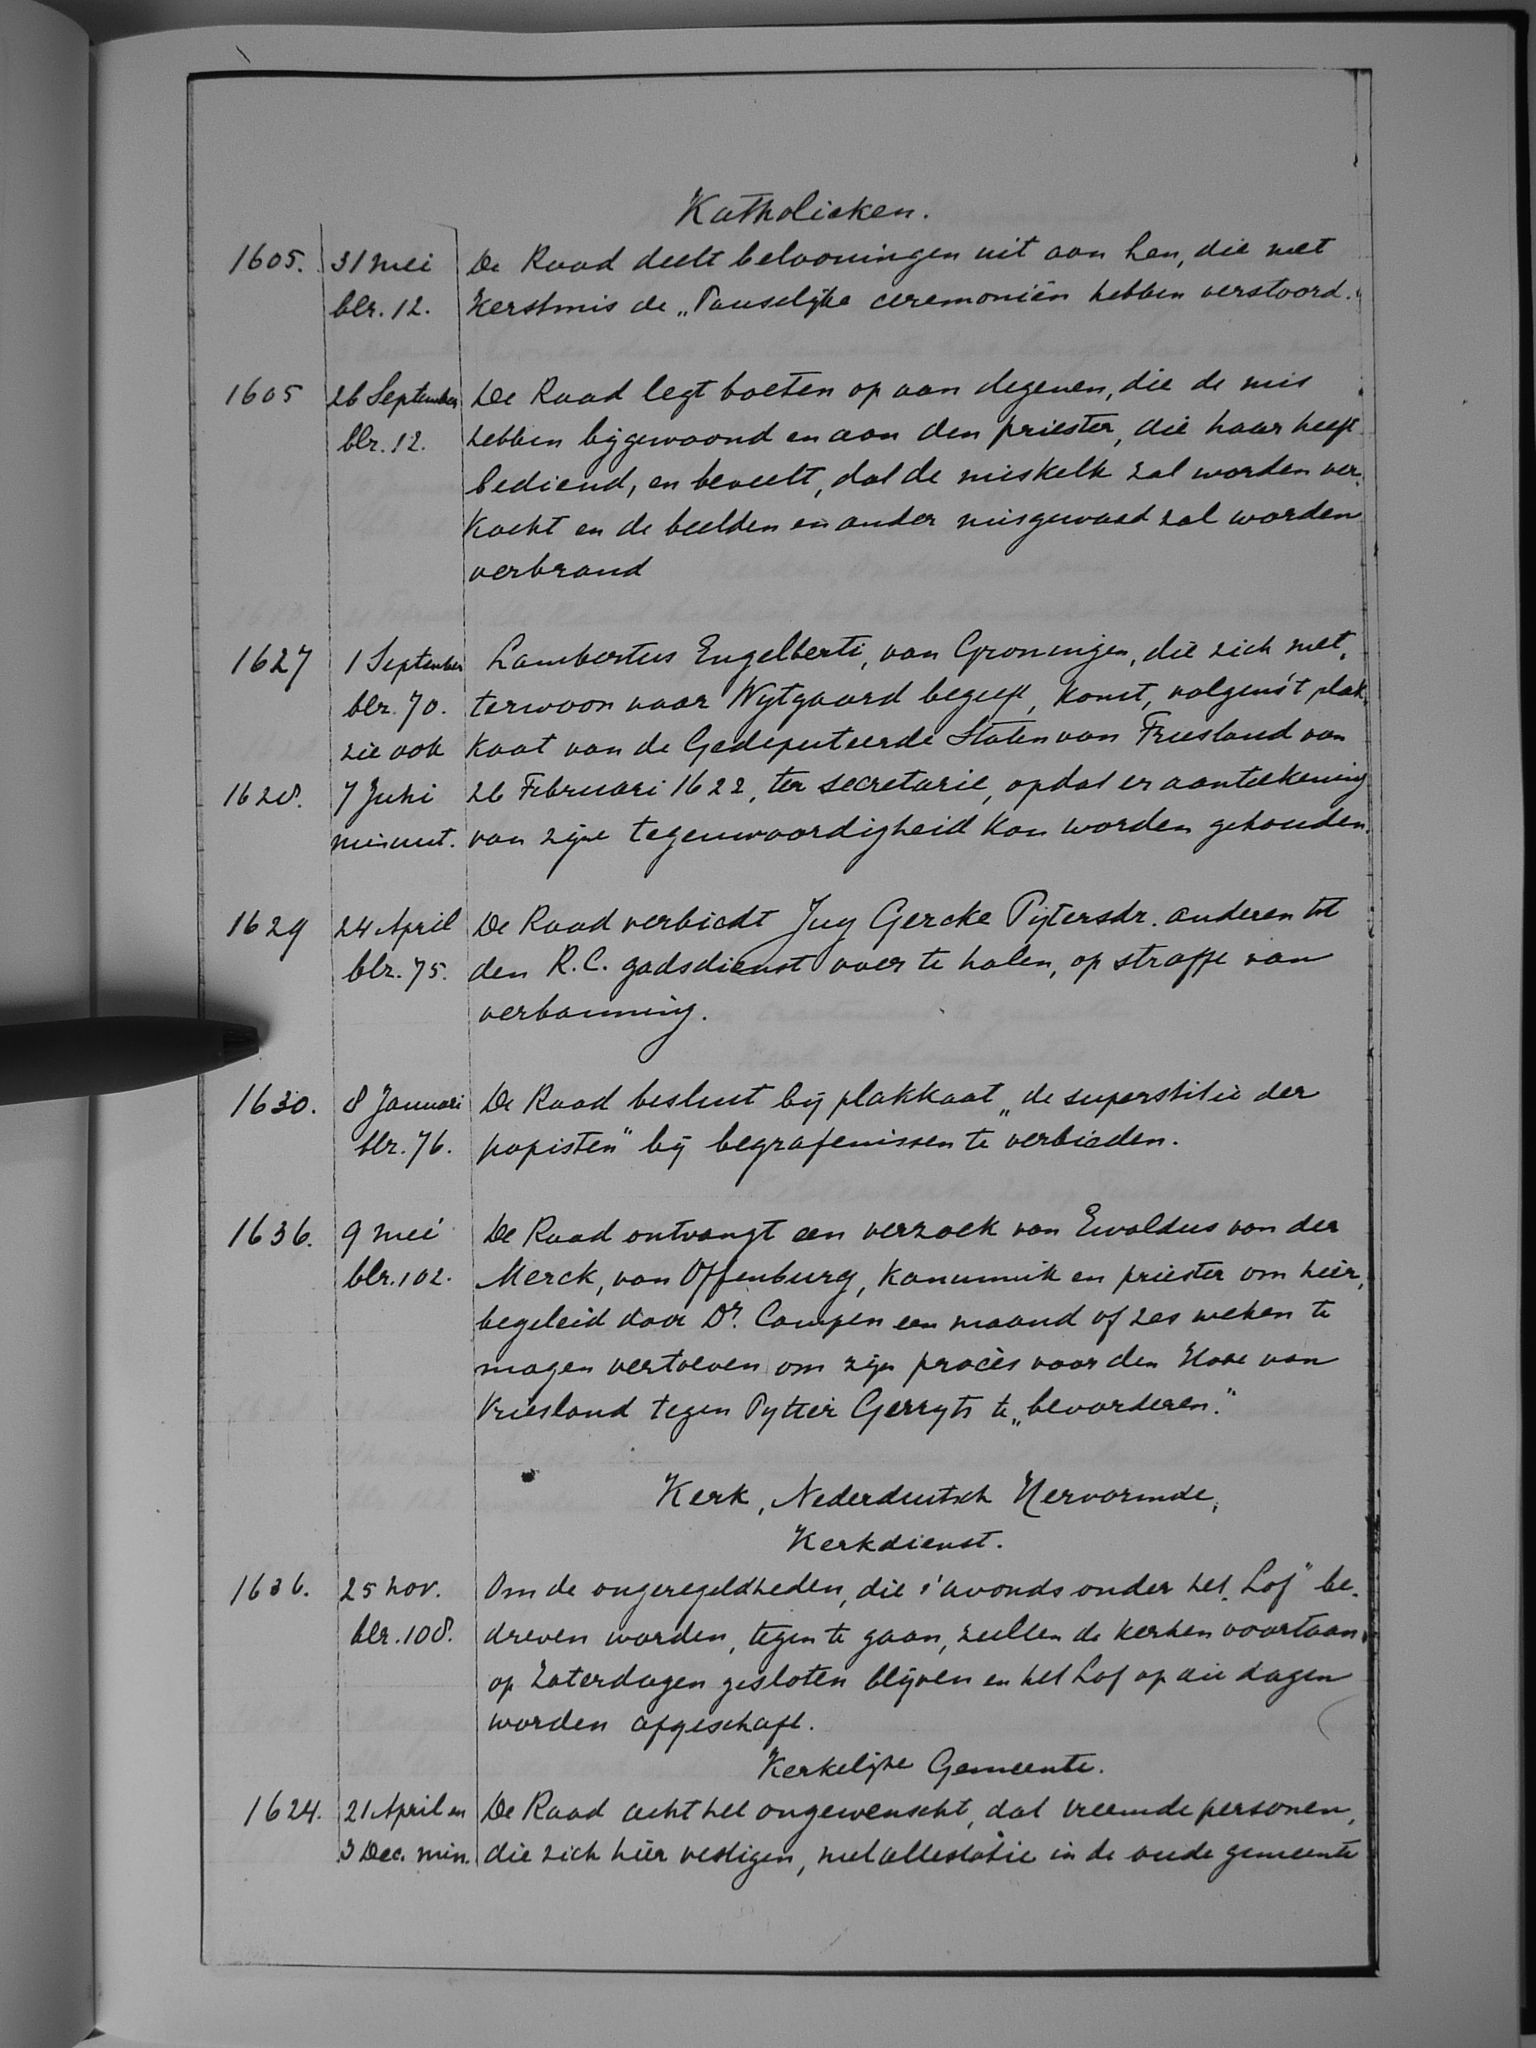 Katholieken.
1605. 31 Mei De Raad deelt belooningen uit aan hen, die met
blz. 12. Kerstmis de „Pauselijke ceremoniën hebben verstoord."
1605 26 September De Raad legt boeten op aan degenen, die de mis
blz. 12. hebben bijgewoond en aan den priester, die haar heeft
bediend, en beveelt, dat de miskelk zal worden ver-
kocht en de beelden en ander misgewaad zal worden
verbrand
1627 1 September Lambertus Engelberti, van Groningen, die zich met-
blz. 70. terwoon naar Wytgaard begeeft, komt, volgens 't plak-
zie ook kaat van de Gedeputeerde Staten van Friesland van
1628. 7 Juni 26 Februari 1622, ter secretarie, opdat er aanteekening
minuut. van zijne tegenwoordigheid kan worden gehouden.
1629 24 April De Raad verbiedt Juy Gercke Pijtersdr. anderen tot
blz. 75. den R.C. godsdienst over te halen, op straffe van
verbanning.
1630. 8 Januari De Raad besluit bij plakkaat „de superstitie der
blz. 76. papisten" bij begrafenissen te verbieden.
1636. 9 Mei De Raad ontvangt een verzoek van Ewaldus van der
blz. 102. Merck, van Offenburg, kanunnik en priester om hier,
begeleid door Dr. Campen een maand of zes weken te
mogen vertoeven om zijn procès voor den Hove van
Vriesland tegen Pytter Gerryts te „bevorderen."
Kerk, Nederduitsch Hervormde,
Kerkdienst.
1636. 25 Nov. Om de ongeregeldheden, die s'avonds onder het „Lof" be-
blz. 108. dreven worden, tegen te gaan, zullen de kerken voortaan
op Zaterdagen gesloten blijven en het Lof op die dagen
worden afgeschaft.
Kerkelijke Gemeente.
1624. 21 April en De Raad acht het ongewenscht, dat vreemde personen,
3 Dec. min. die zich hier vestigen, met attestatie in de oude gemeente